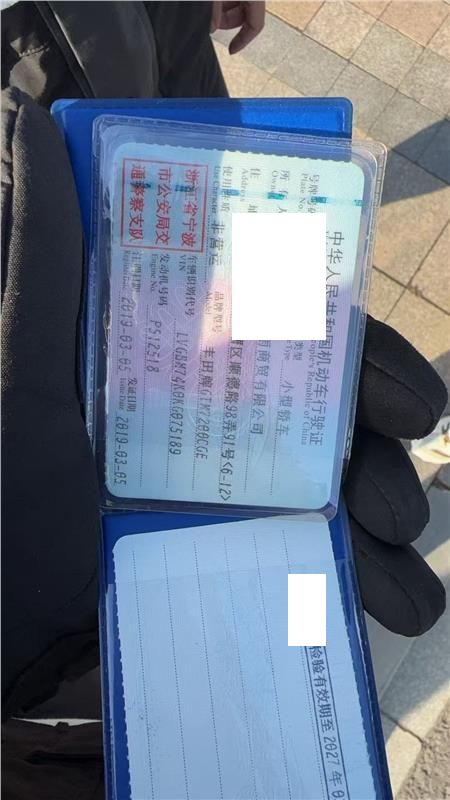 中华人民共和国机动车行驶证
eople's Republic of China
号牌号
Plate No.
类型
e Type
小型轿车
所有人
Owner
商贸有限公司
住 地
Address
区顺德路98弄91号<6-12>
使用性质
Use Character
非营运
品牌型号
Model
丰田牌GTM7200CGE
浙江省宁波
市公安局交
通警察支队
车辆识别代号
VIN
LVGBM74K0KG075189
发动机号码
Engine No.
P512518
注册日期
Register Date
2019-03-05
发证日期
Issue Date
2019-03-05
检验有效期至2027年0